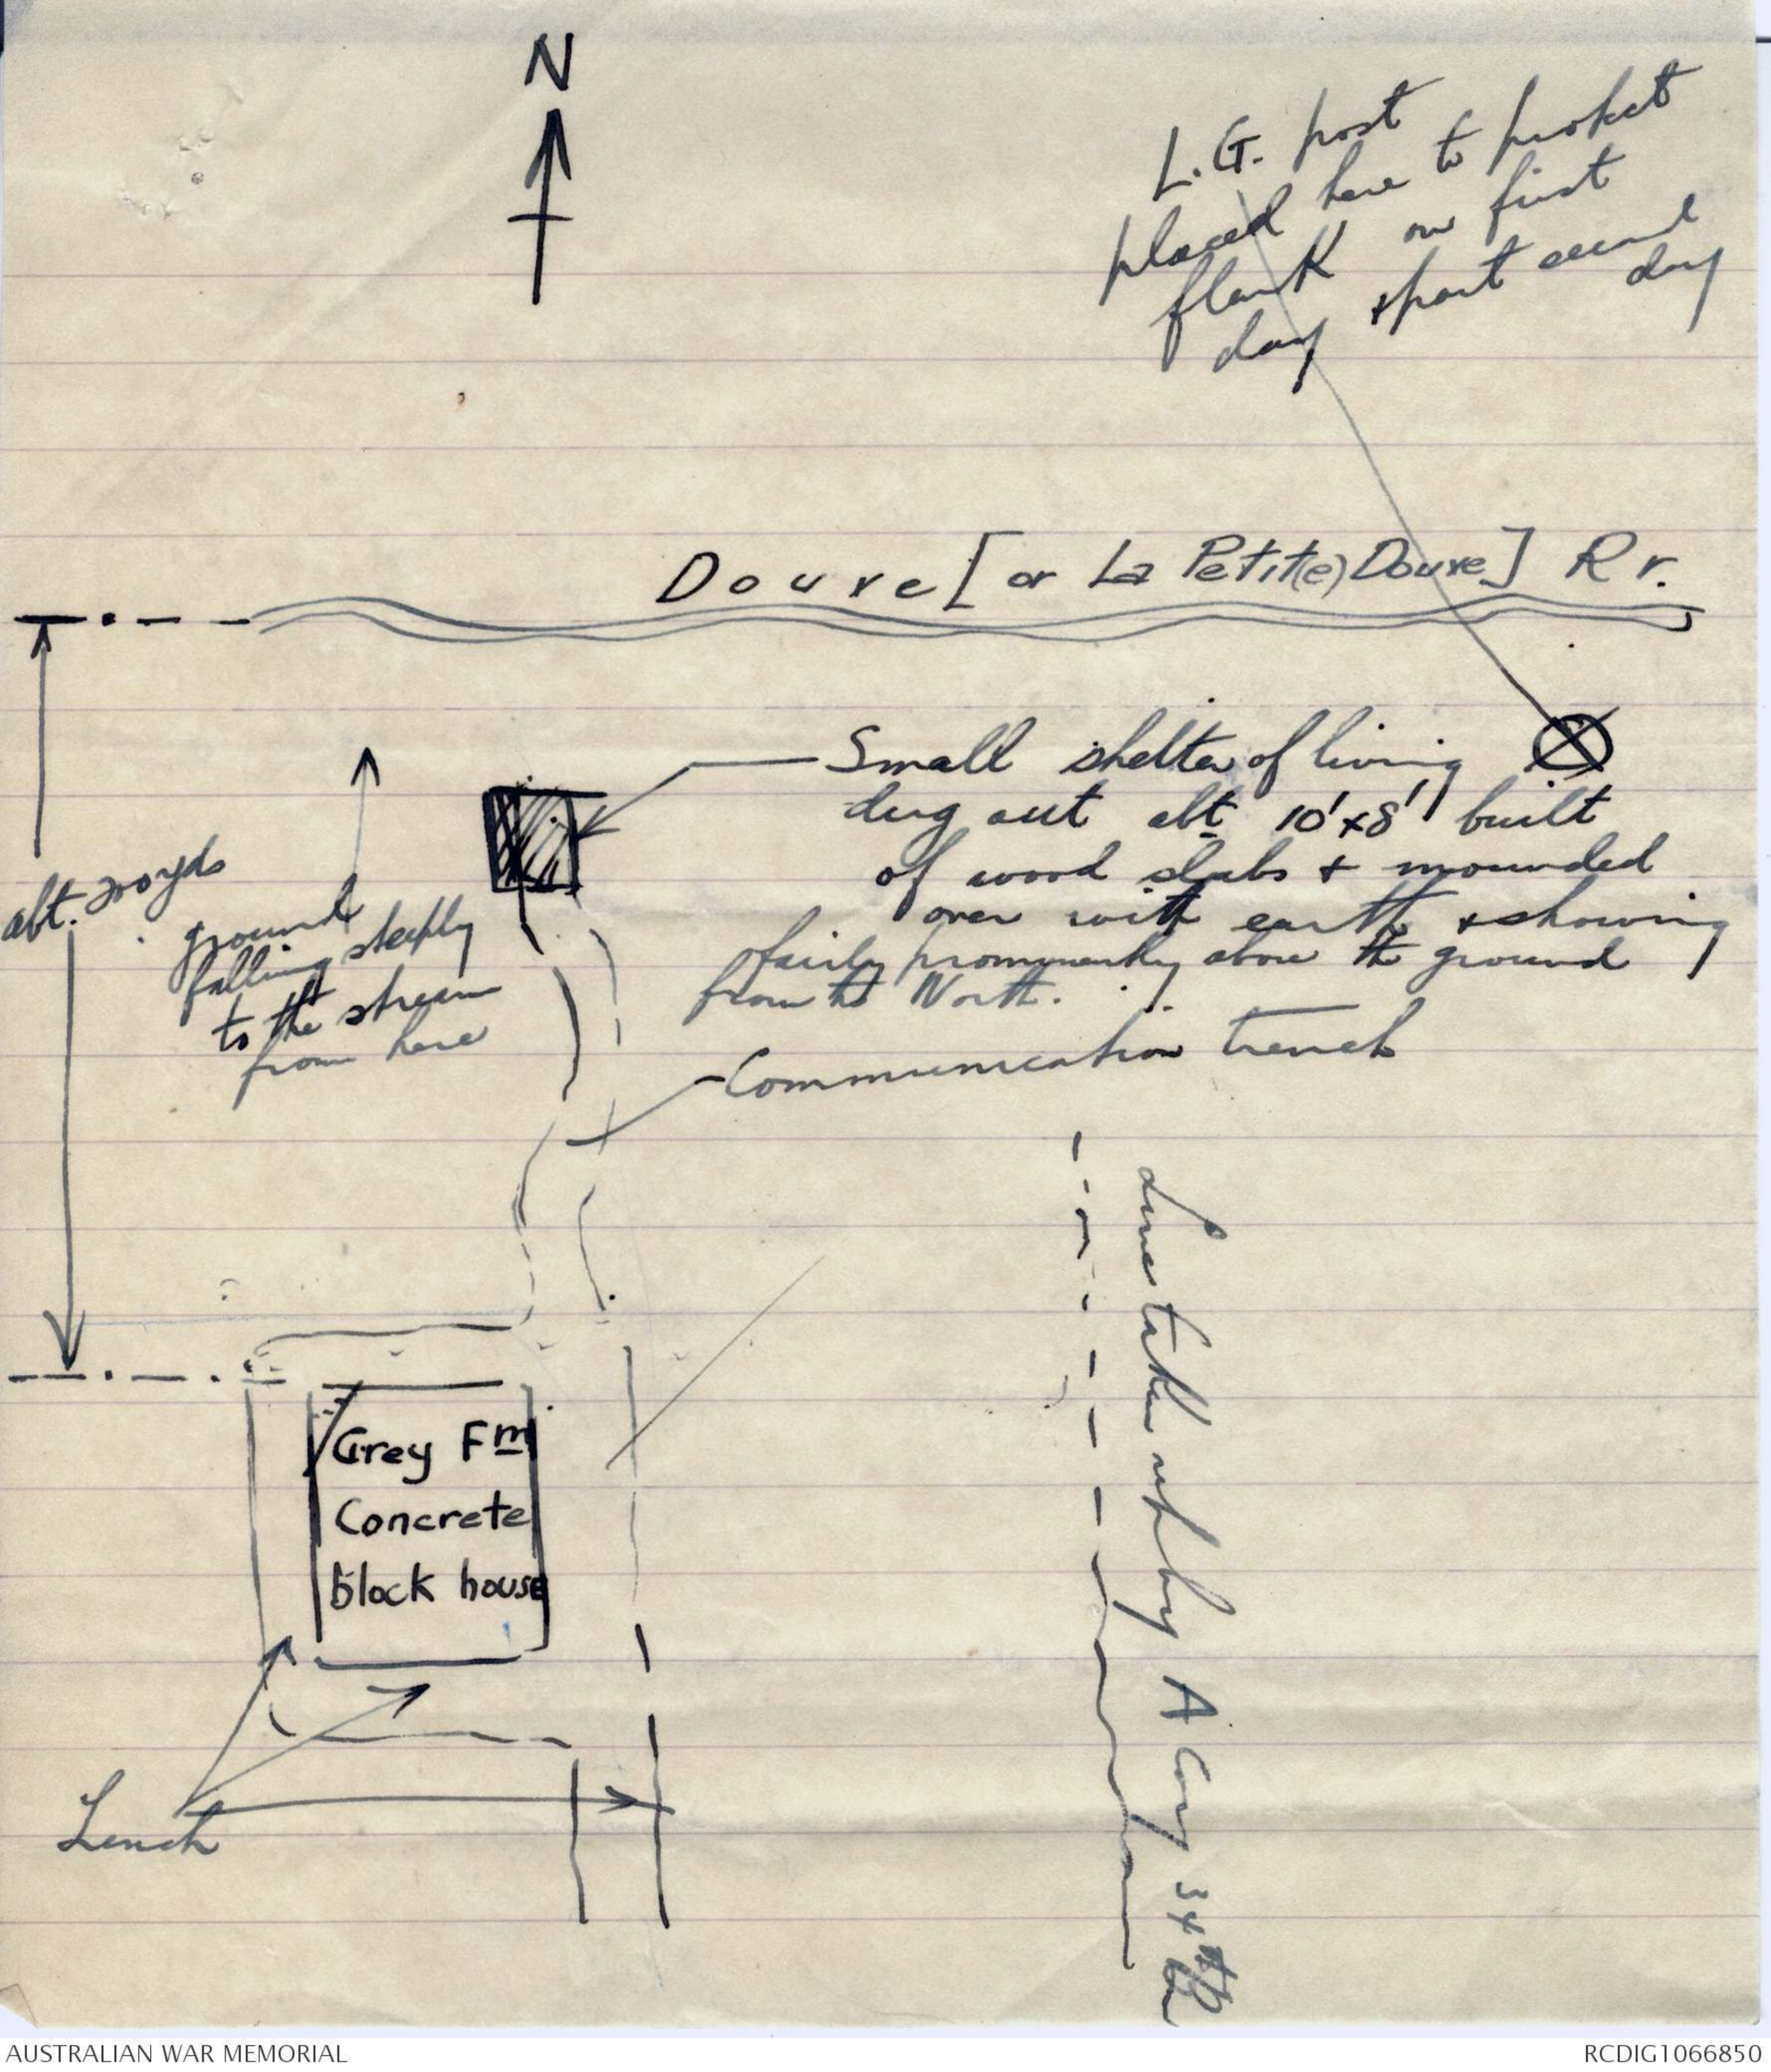 N
L.G. post
placed here to protect
flank on first
day & part second
day
Douve [or La Petit(e) Douve] Rr.
Small shelter of living
dug out abt 10'x8' built
of wood slabs & mounded
over with earth & showing
fairly prominently above the ground
from the North.
abt. yds
ground
falling steeply
to the stream
from here
Communication trench
Line taken up by A Coy 34th Bn
Grey Fm
Concrete
block house
Trench
AUSTRALIAN WAR MEMORIAL
RCDIG1066850